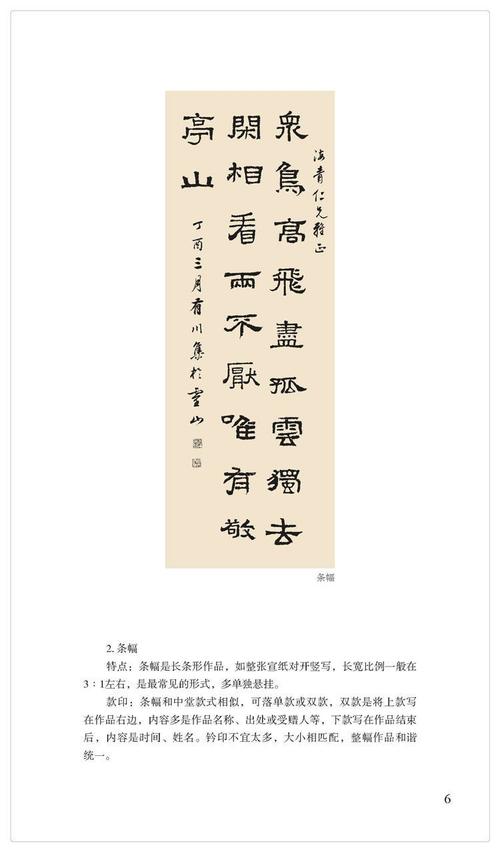 海青仁兄雅正
衆鳥高飛盡孤雲獨去
閑相看兩不厭唯有敬
亭山
丁酉三月有川集於靈山
条幅
2. 条幅
特点：条幅是长条形作品，如整张宣纸对开竖写，长宽比例一般在
3∶1左右，是最常见的形式，多单独悬挂。
款印：条幅和中堂款式相似，可落单款或双款，双款是将上款写
在作品右边，内容多是作品名称、出处或受赠人等，下款写在作品结束
后，内容是时间、姓名。钤印不宜太多，大小相匹配，整幅作品和谐
统一。
6